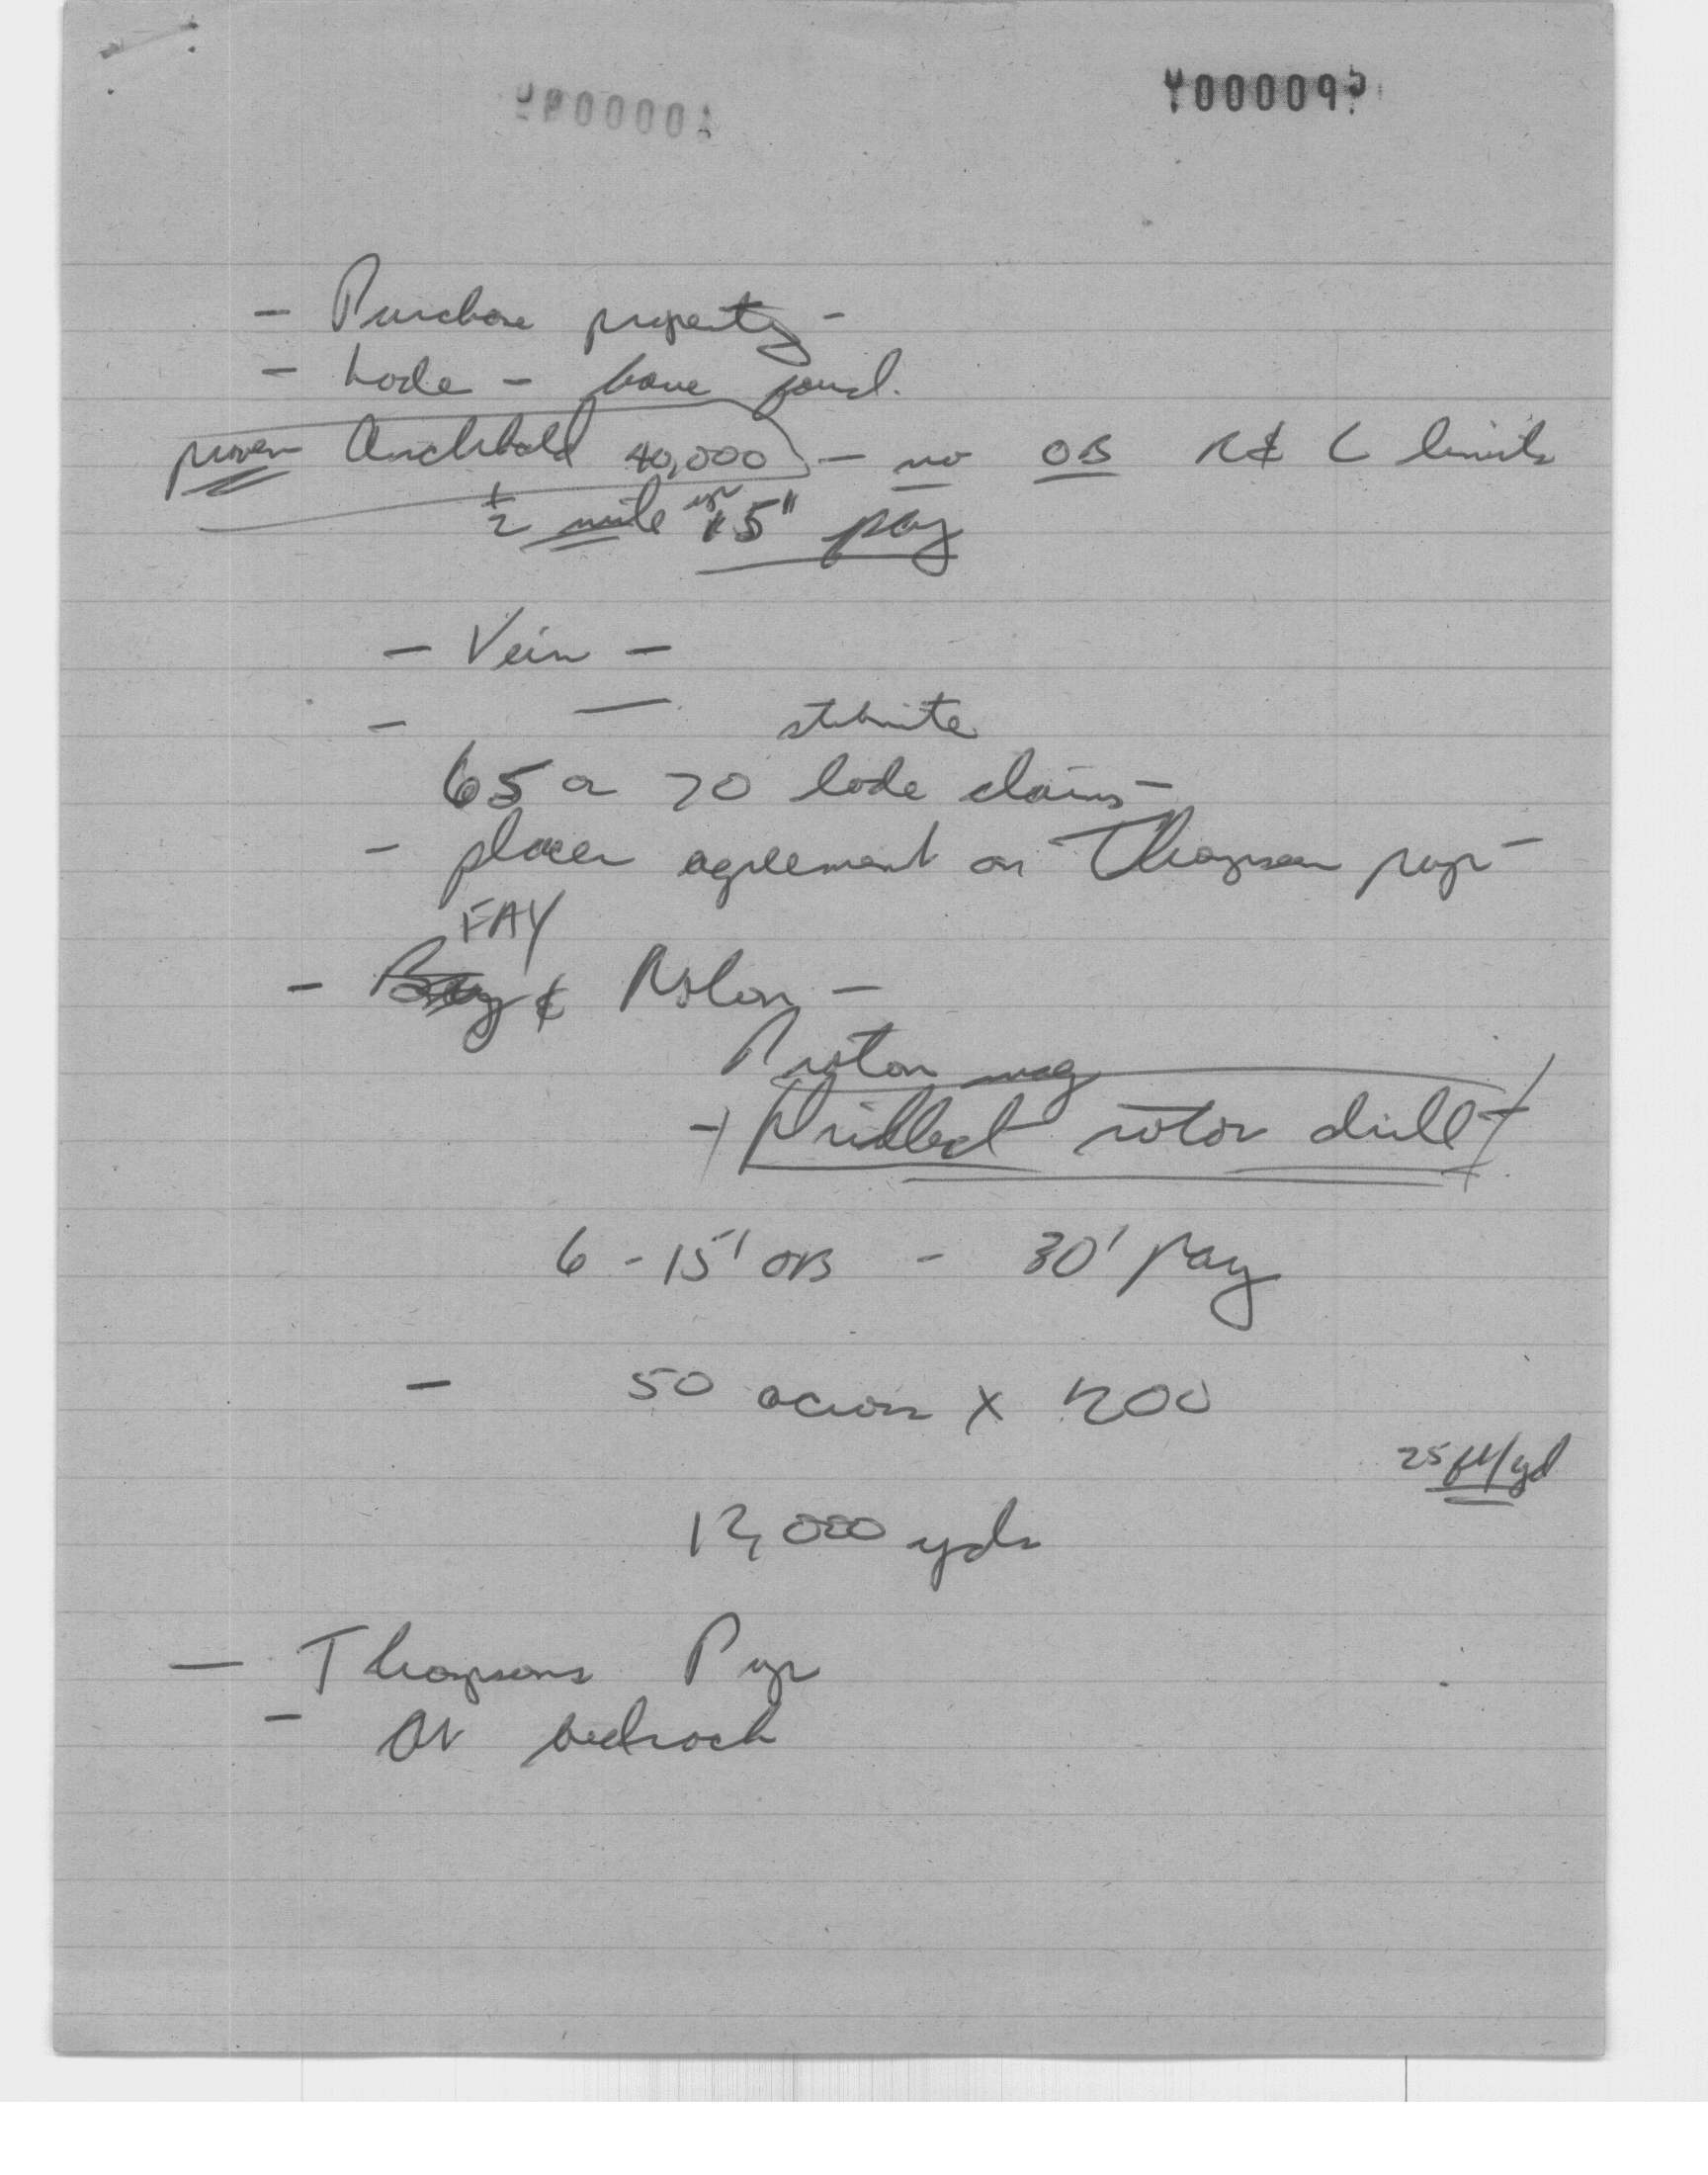 - Purchase property -
- Lode - have found.
proven Archbold 40,000 - no OB R & C limits
1/2 mile 15" pay
- Vein -
- - stibnite
65 or 70 lode claims -
- placer agreement on Thompson prop -
FAY
- & Rolon -
Proton mag
Drilled rotor drill
6 - 15' OB - 30' pay
- 50 acres x 200
25 ft/yd
12,000 yds
- Thompsons Prop
- At bedrock